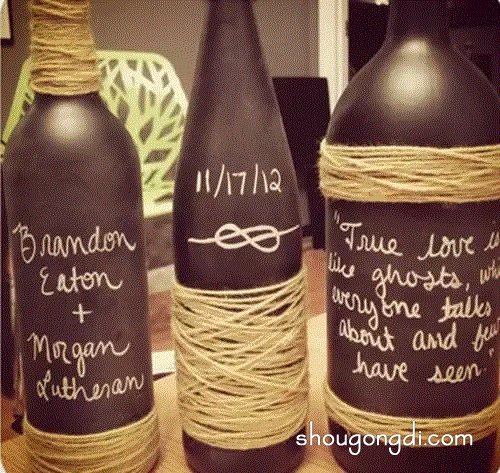 Brandon
Eaton
+
Morgan
Lutheran
11/17/12
"True love is
like ghosts, wh
everyone talks
about and few
have seen."
shougongdi.com